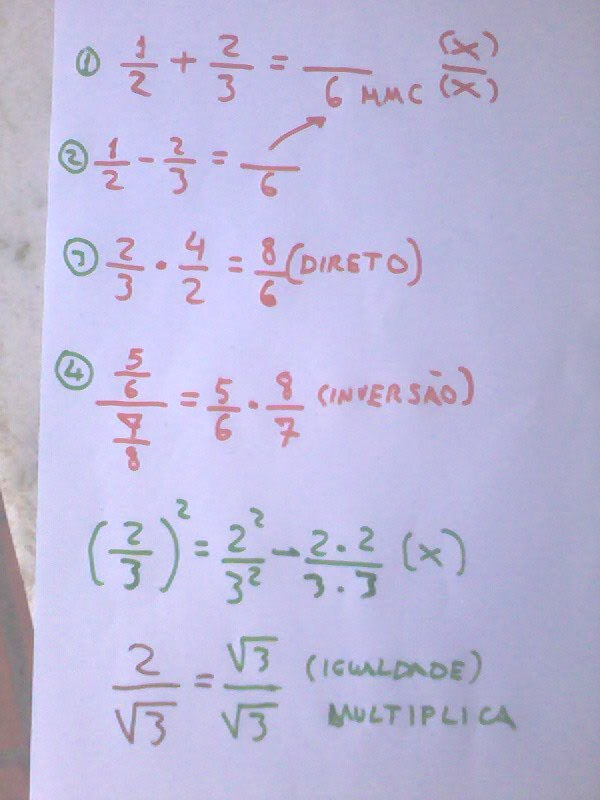 ① 1/2 + 2/3 = __/6 MMC (X)/(X)
② 1/2 - 2/3 = __/6
③ 2/3 · 4/2 = 8/6 (DIRETO)
④ (5/6)/(7/8) = 5/6 · 8/7 (INVERSÃO)
(2/3)² = 2²/3² - 2·2/3·3 (X)
2/√3 = √3/√3 (IGUALDADE)
MULTIPLICA